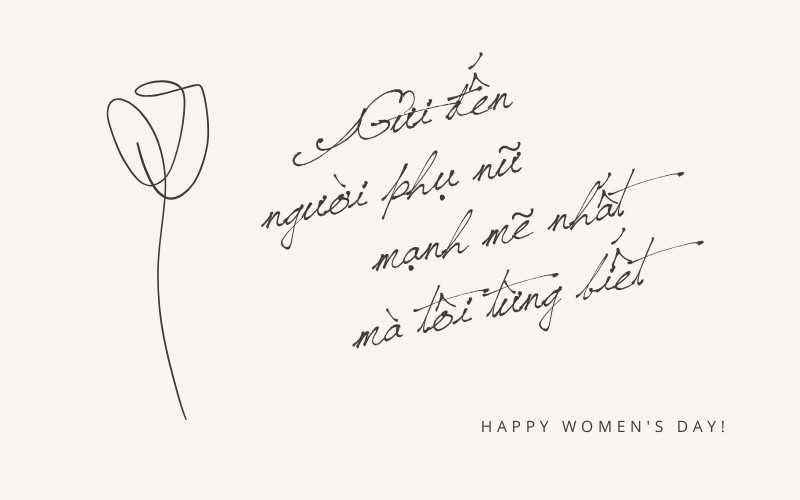 Gửi đến
người phụ nữ
mạnh mẽ nhất
mà tôi từng biết
HAPPY WOMEN'S DAY!